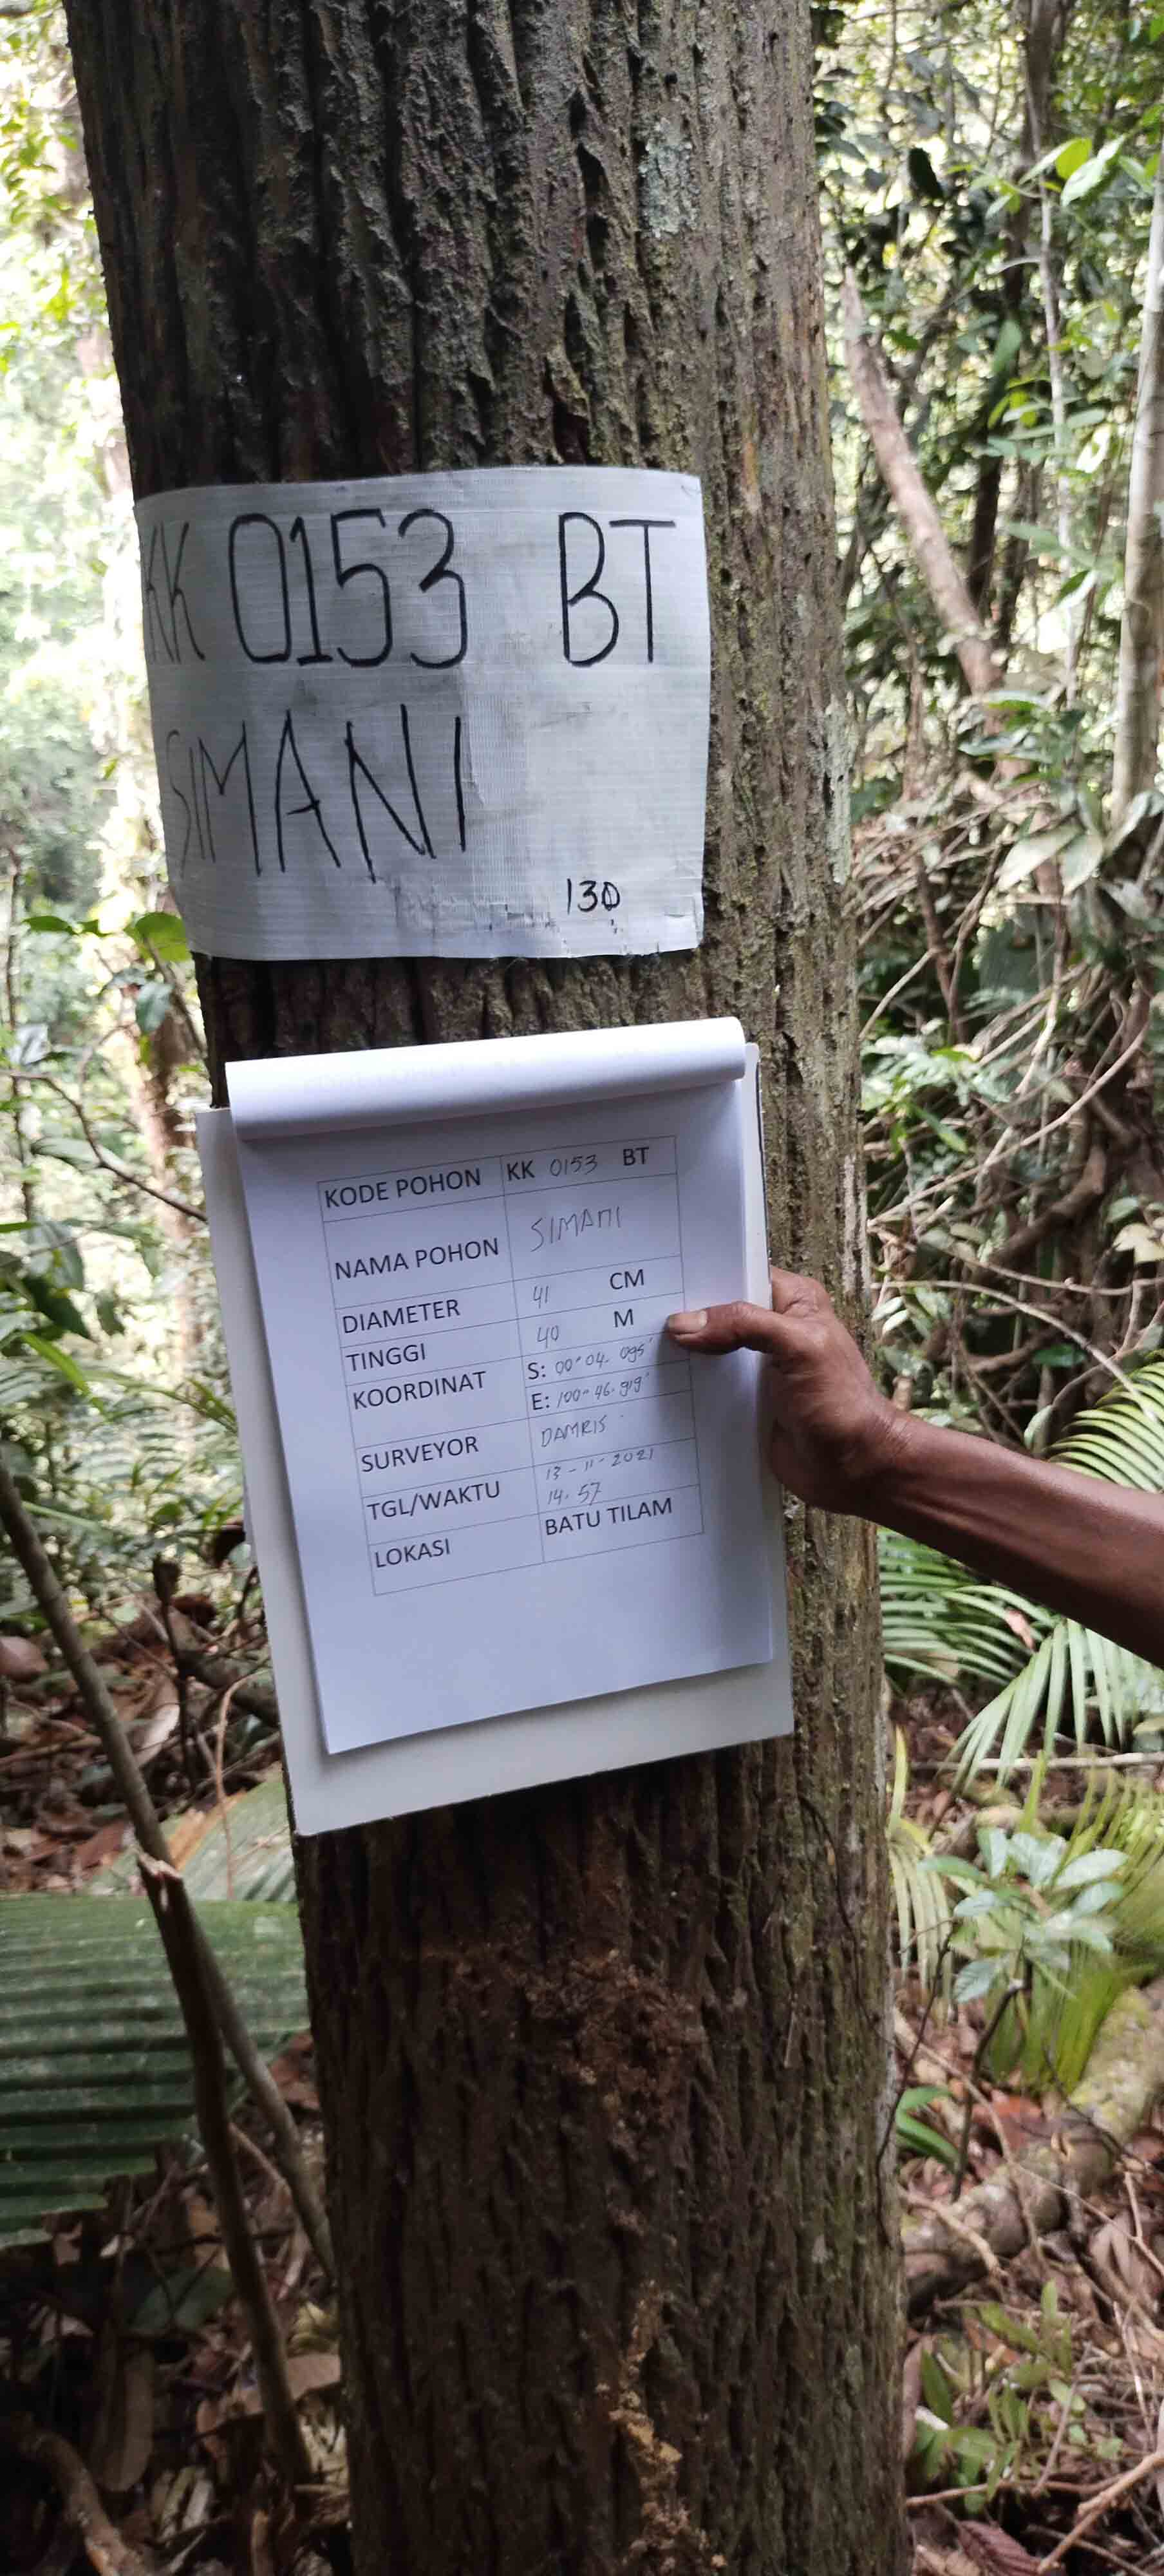 KK 0153 BT
SIMANI
130
KODE POHON KK 0153 BT
NAMA POHON SIMANI
DIAMETER 41 CM
TINGGI 40 M
KOORDINAT S: 00° 04. 095'
E: 100° 46. 919'
SURVEYOR DAMRIS
TGL/WAKTU 13-11-2021
14.57
LOKASI BATU TILAM